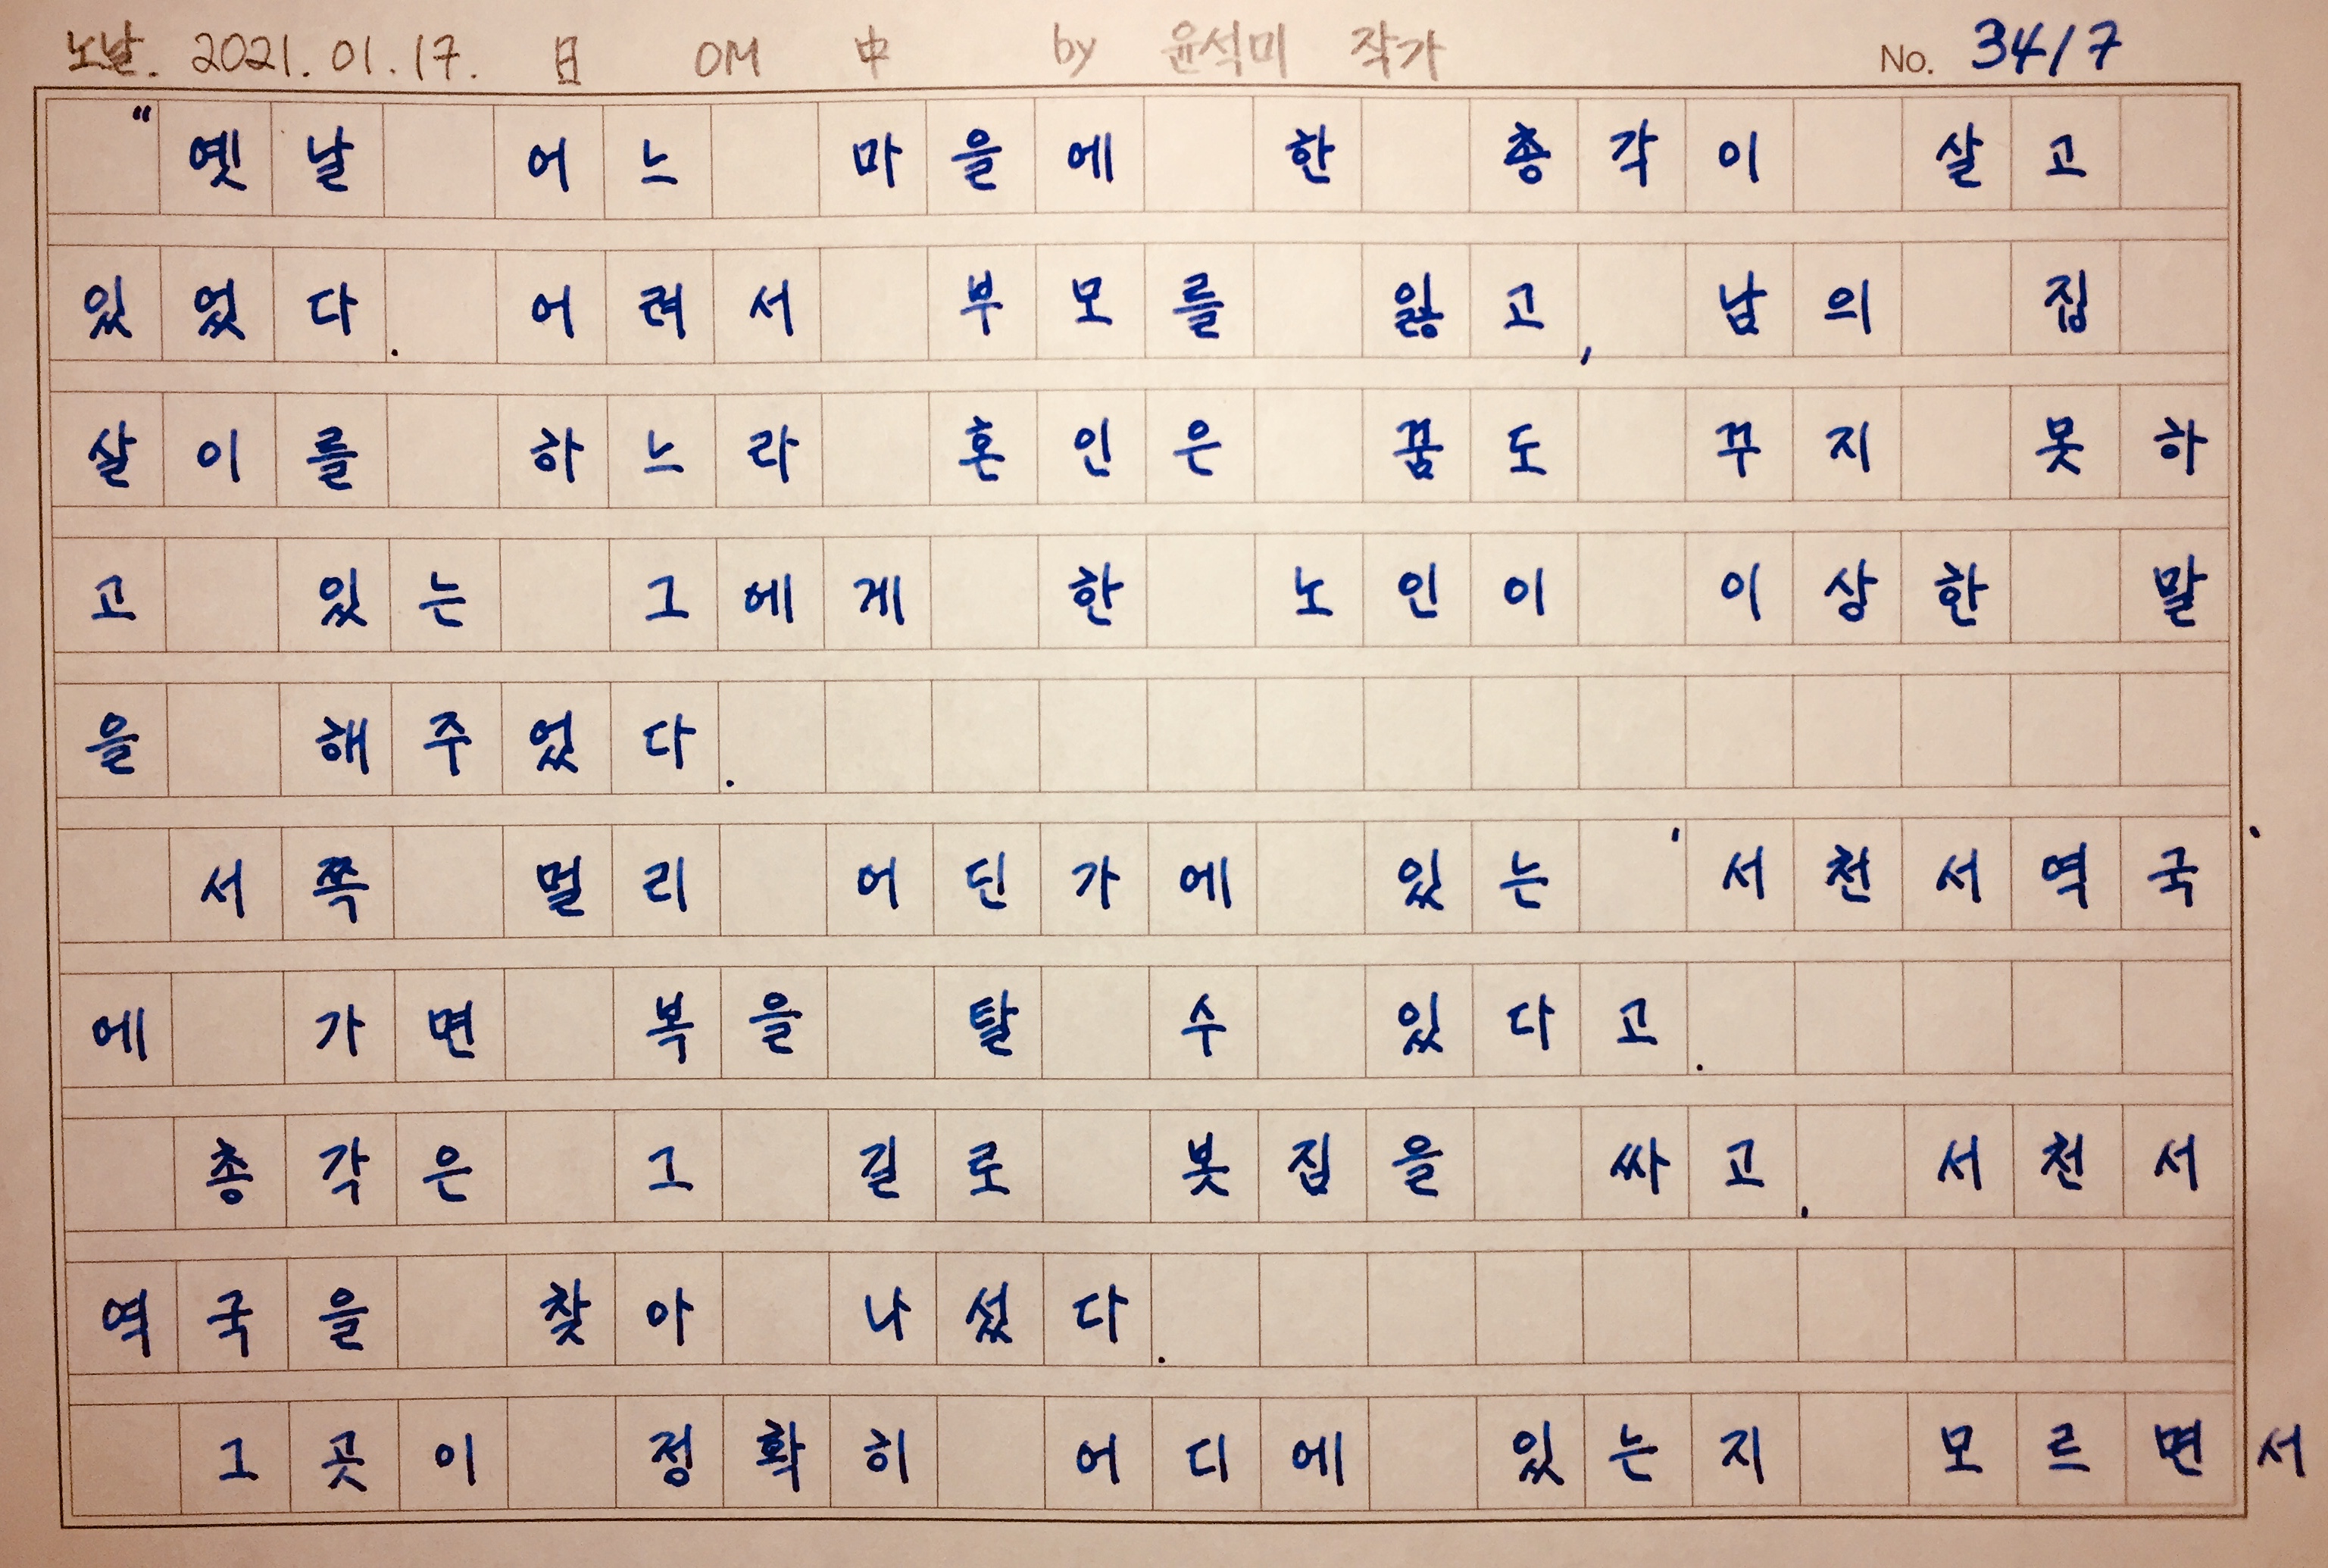 노날. 2021. 01. 17. 日 OM 中 by 윤석미 작가 No. 34/7
"옛날 어느 마을에 한 총각이 살고
있었다. 어려서 부모를 잃고, 남의 집
살이를 하느라 혼인은 꿈도 꾸지 못하
고 있는 그에게 한 노인이 이상한 말
을 해주었다.
서쪽 멀리 어딘가에 있는 '서천서역국'
에 가면 복을 탈 수 있다고.
총각은 그 길로 봇짐을 싸고, 서천서
역국을 찾아 나섰다.
그곳이 정확히 어디에 있는지 모르면서